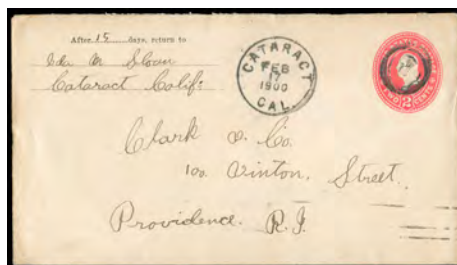 After 15 days, return to
Ida M Sloan
Cataract Calif:
CATARACT
FEB
17
1900
CAL.
TWO 2 CENTS
Clark & Co.
100 Vinton, Street.
Providence. R.I.